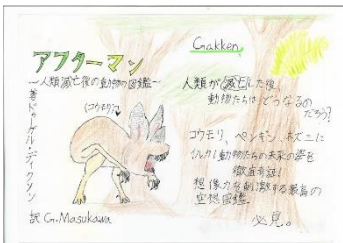 Gakken
アフターマン
～人類滅亡後の動物の図鑑～
著ドゥガル・ディクソン
(コウモリ)
訳 G.Masukawa
人類が滅亡した後
動物たちはどうなるの
だろう?
コウモリ、ペンギン、ネズミに
イルカ!動物たちの未来の姿を
徹底考証!
想像力を刺激する最高の
空想図鑑。
必見。